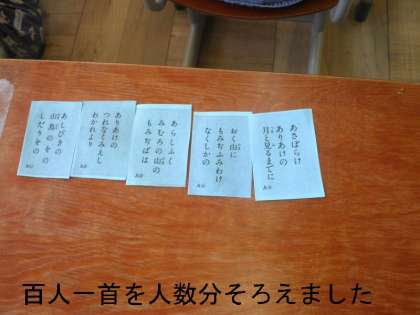 あさぼらけ
ありあけの
月と見るまでに
おく山に
もみぢふみわけ
なくしかの
あらしふく
みむろの山の
もみぢばは
ありあけの
つれなくみえし
わかれより
あしびきの
山鳥のをの
しだりをの
百人一首を人数分そろえました